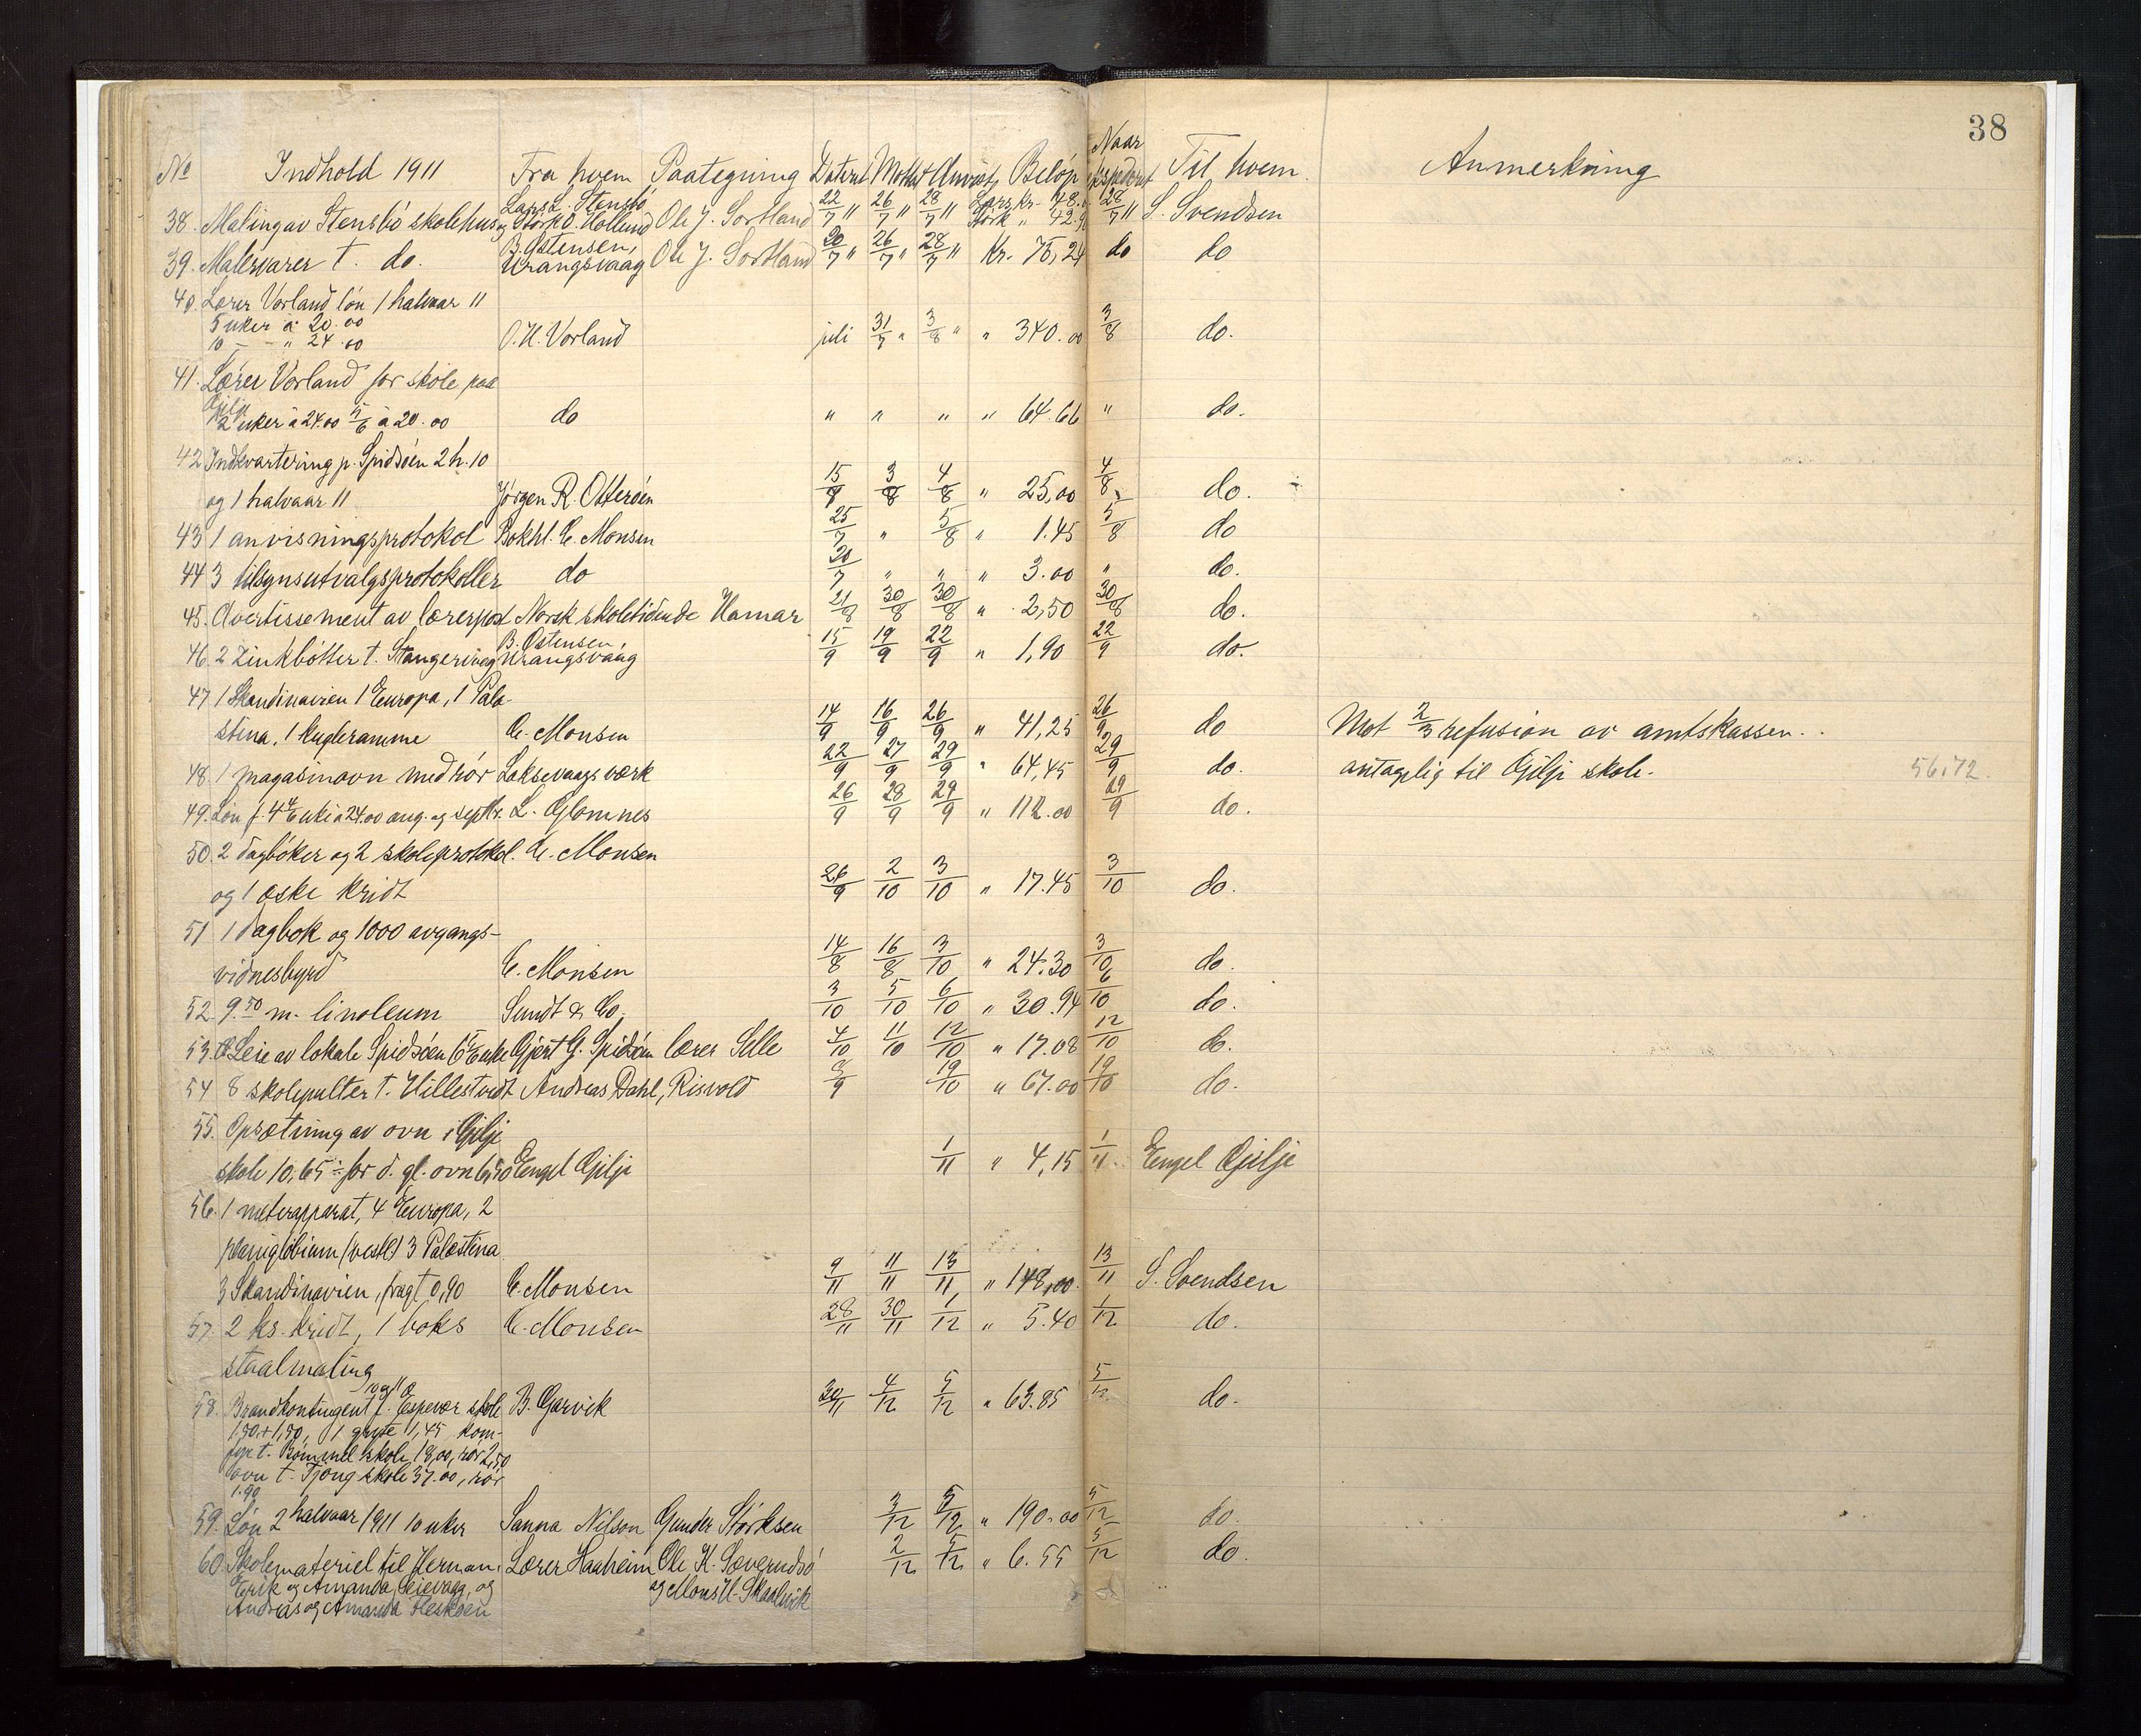 38
No Indhold 1911 Fra hvem Paategning Dateret Motta Anvist Beløp Naar expedert Til hvem. Anmerkning
38. Maling av Stensbö skolehus Lars L. Stensbö og Störk O. Hollund Ole J. Sortland 22/7 " 26/7 " 28/7 " Lars kr. 48. Störk " 42.9 28/7 " S. Svendsen
39. Malervarer t. do. B. Östensen, Urangsvaag Ole J. Sortland 20/7 " 26/7 " 28/7 " Kr. 75,24 do do
40. Lærer Vorland lön 1 halvaar 11
5 uker à 20.00
10 — " 24.00 O. H. Vorland juli 31/7 " 3/8 " " 340.00 3/8 do.
41. Lærer Vorland for skole paa
Gilje
2 uker à 24.00 5/6 à 20.00 do " " " " 64.66 " do.
42 Indkvartering p. Spidsöen 2 h. 10
og 1 halvaar 11 Jørgen R. Otteröen 15/8 3/8 4/8 " 25,00 4/8 do.
43 1 anvisningsprotokol Bokhl. C. Monsen 25/7 " 5/8 " 1.45 5/8 do
44 3 tilsynsutvalgsprotokoller do 20/7 " " " 3.00 " do.
45. Avertissement av lærerpost Norsk skoletidende Hamar 21/8 30/8 30/8 " 2,50 30/8 do.
46. 2 Zinkbötter t. Stangervaag B. Östensen, Urangsvaag 15/9 19/9 22/9 " 1,90 22/9 do.
47 1 Skandinavien 1 Europa, 1 Palæ-
stina, 1 kugleramme C. Monsen 14/9 16/9 26/9 " 41,25 26/9 do Mot 2/3 refusion av amtskassen.
48. 1 magasinovn med rör Laksevaags værk 22/9 27/9 29/9 " 64,45 29/9 do. antagelig til Gilje skole. 56.72.
49. Lön f. 4 4/6 uke à 24.00 aug. og septbr. L. Glomnes 26/9 28/9 29/9 " 112.00 29/9 do.
50. 2 dagböker og 2 skoleprotokol. C. Monsen
og 1 æske kridt 26/9 2/10 3/10 " 17.45 3/10 do.
51 1 dagbok og 1000 avgangs-
vidnesbyrd C. Monsen 14/8 16/8 3/10 " 24.30 3/10 do.
52. 9.50 m. linoleum Sundt & Co. 3/10 5/10 6/10 " 30.94 6/10 do.
53. Leie av lokale Spidsöen 6 5/6 uke Gjert G. Spidsöen lærer Selle 4/10 11/10 12/10 " 17.08 12/10 do.
54 8 skolepulter t. Hillestvedt Andreas Dahl, Risvold 8/9 19/10 " 67.00 19/10 do.
55. Opsætning av ovn i Gilje
skole 10,65 ÷ for d. gl. ovn 6,50 Engel Gilje 1/11 " 4,15 1/11 Engel Gilje
56. 1 meterapparat, 4 Europa, 2
planiglobium (vestl) 3 Palæstina
3 Skandinavien, fragt 0,90 C. Monsen 9/11 11/11 13/11 " 148,00. 13/11 S. Svendsen
57. 2 ks. kridt, 1 boks C. Monsen 28/11 30/11 1/12 " 5.40 1/12 do.
staalmaling
58. Brandkontingent f. Espevær skole 10 og 11 B. Garvik 30/11 4/12 5/12 " 63.85 5/12 do.
1,50+1,50, 1 gryte 1,45 kom-
fyr t. Bömmel skole 18,00, rör 2,50
ovn t. Tjong skole 37.00, rör
1.90
59. Lön 2 halvaar 1911 10 uker Sanna Nilson Gunder Störksen 3/12 5/12 " 190.00 5/12 do.
60. Skolemateriel til Herman, Lærer Haaheim Ole K. Sæverudsö 2/12 5/12 " 6.55 5/12 do.
Erik og Amanda Leievaag, og og Mons H. Skaalevik
Andreas og Amanda